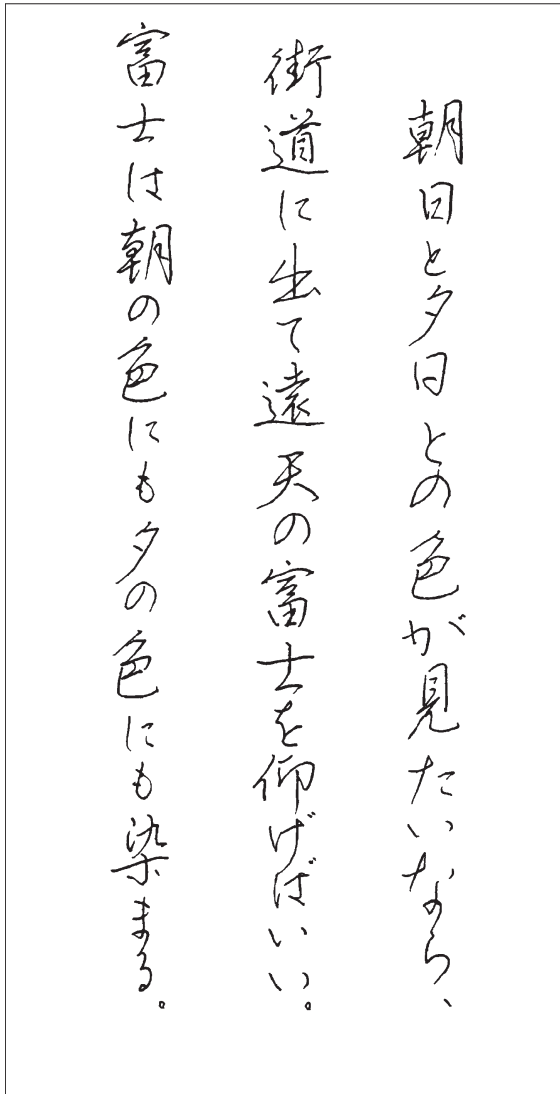 朝日と夕日との色が見たいなら、
街道に出て遠天の富士を仰げばいい。
富士は朝の色にも夕の色にも染まる。